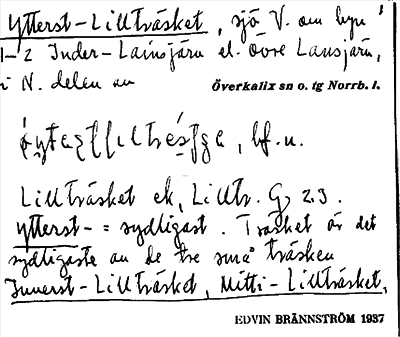 Ytterst-Lillträsket, sjö V. om byn
1-2 Inder-Lainsjärv el. Övre Lansjärv,
i N. delen av Överkalix sn o. tg Norrb. l.
bf. n.
Lillträsket ek, Lilltr. G 2.3.
Ytterst- = sydligast. Träsket är det
sydligaste av de tre små träsken
Innerst-Lillträsket, Mitti-Lillträsket,
EDVIN BRÄNNSTRÖM 1937